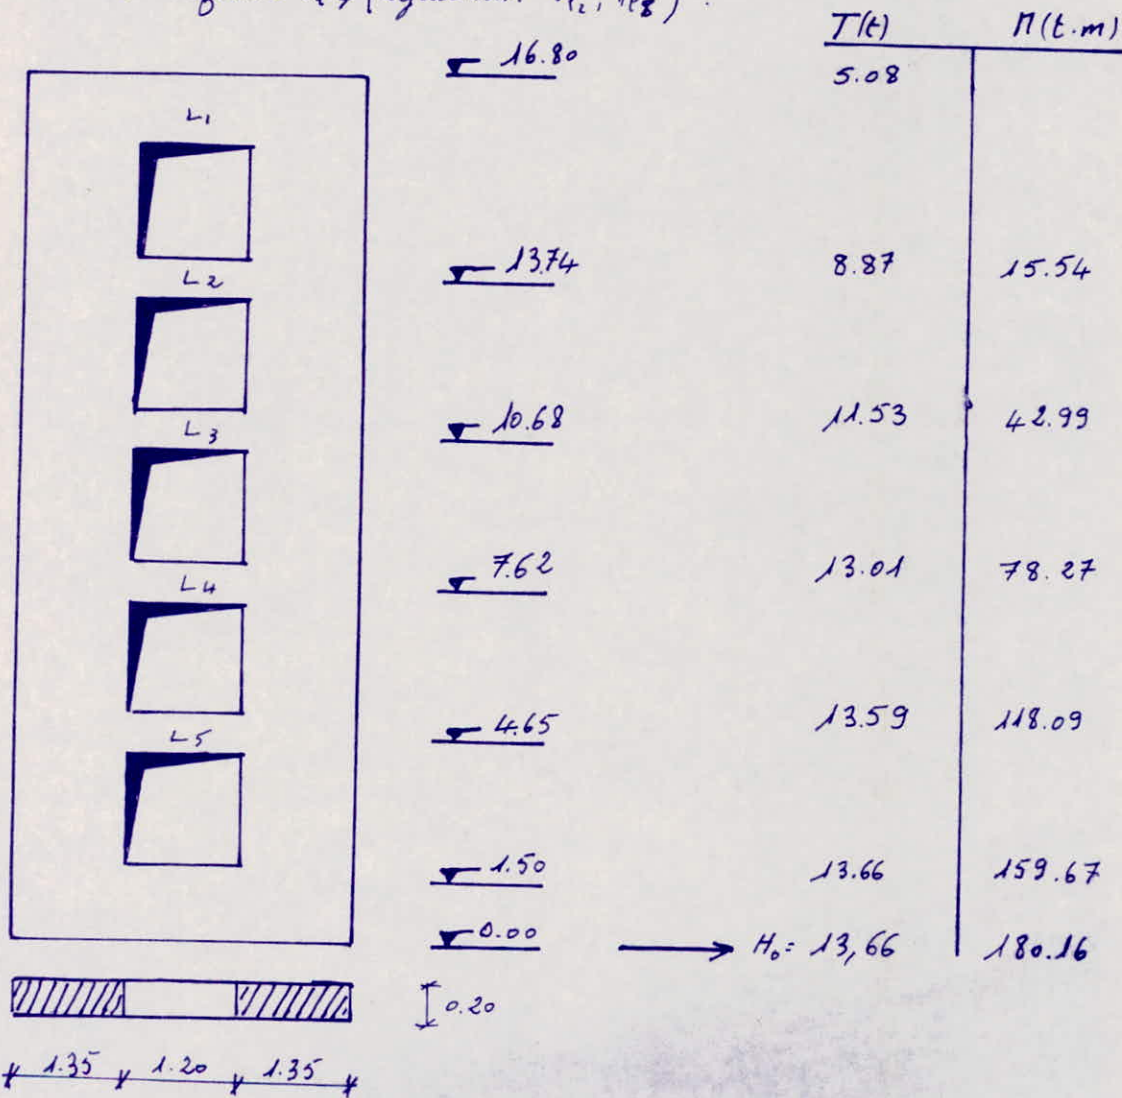 T(t) M(t.m)
16.80 5.08
L1
13.74 8.87 15.54
L2
10.68 11.53 42.99
L3
7.62 13.01 78.27
L4
4.65 13.59 118.09
L5
1.50 13.66 159.67
0.00 H₀= 13,66 180.16
0.20
1.35 1.20 1.35